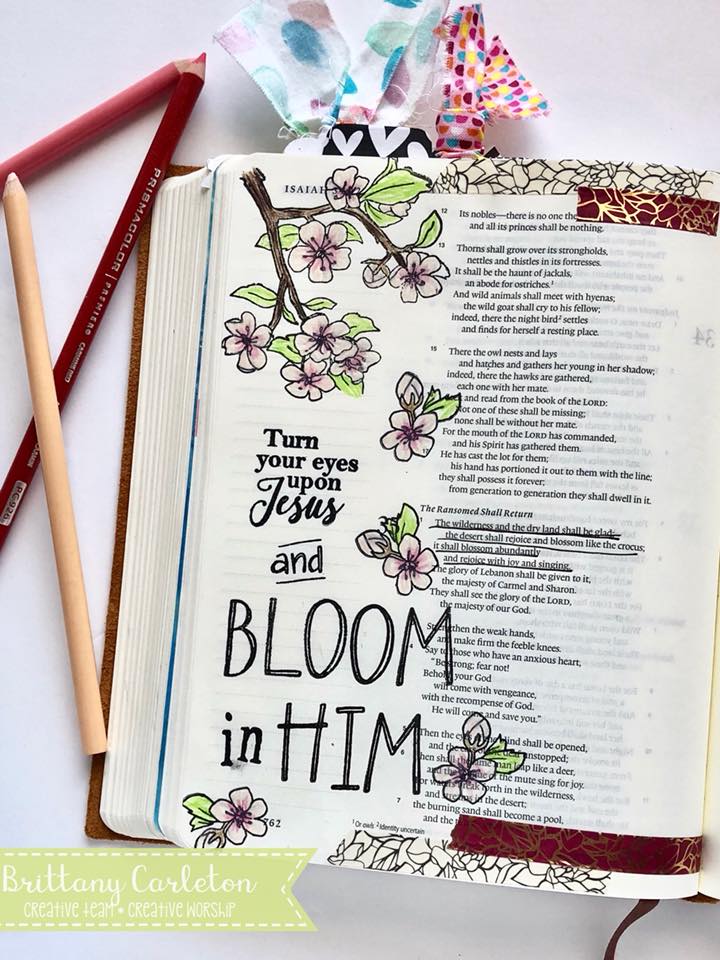 PRISMACOLOR PREMIER
ISAIAH
12 Its nobles—there is no one
and all its princes shall be nothing.
13 Thorns shall grow over its strongholds,
nettles and thistles in its fortresses.
It shall be the haunt of jackals,
an abode for ostriches.1
And wild animals shall meet with hyenas;
the wild goat shall cry to his fellow;
indeed, there the night bird2 settles
and finds for herself a resting place.
15 There the owl nests and lays
and hatches and gathers her young in her shadow;
indeed, there the hawks are gathered,
each one with her mate.
and read from the book of the LORD:
Not one of these shall be missing;
none shall be without her mate.
For the mouth of the LORD has commanded,
and his Spirit has gathered them.
17 He has cast the lot for them;
his hand has portioned it out to them with the line;
they shall possess it forever;
from generation to generation they shall dwell in it.
The Ransomed Shall Return
The wilderness and the dry land shall be glad;
the desert shall rejoice and blossom like the crocus;
it shall blossom abundantly
and rejoice with joy and singing.
The glory of Lebanon shall be given to it,
the majesty of Carmel and Sharon.
They shall see the glory of the LORD,
the majesty of our God.
Strengthen the weak hands,
and make firm the feeble knees.
Say to those who have an anxious heart,
"Be strong; fear not!
Behold, your God
will come with vengeance,
with the recompense of God.
He will come and save you."
Then the eyes blind shall be opened,
and the unstopped;
then shall man leap like a deer,
and the of the mute sing for joy.
forth in the wilderness,
and in the desert;
7 the burning sand shall become a pool,
and the
1 Or owls 2 Identity uncertain
762
Turn
your eyes
upon
Jesus
and
BLOOM
in HIM
34
Brittany Carleton
CREATIVE TEAM • CREATIVE WORSHIP